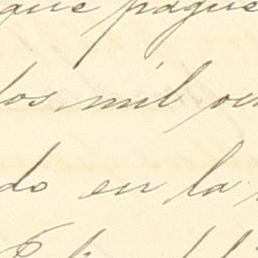 que pague
dos mil oc
do en la